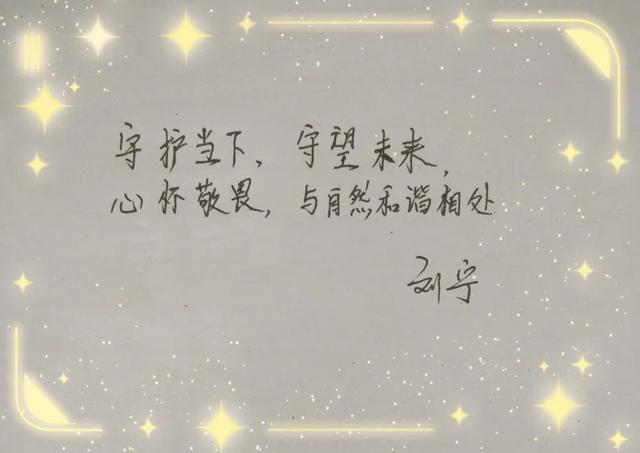 守护当下，守望未来，
心怀敬畏，与自然和谐相处
刘宁